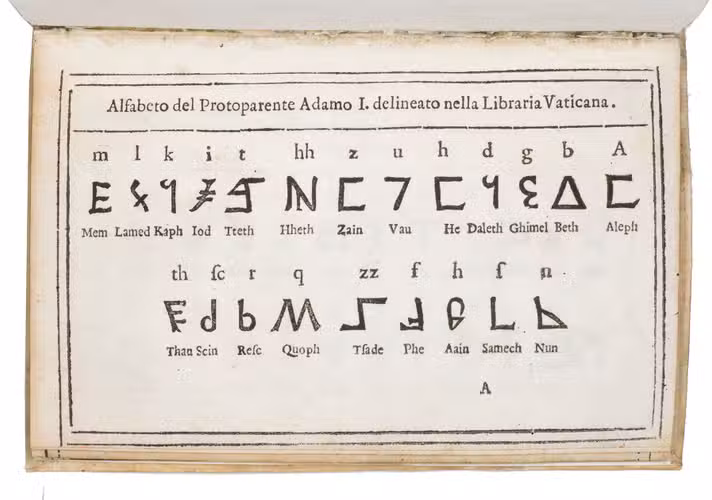 Alfabeto del Protoparente Adamo I. delineato nella Libraria Vaticana.
m l k i t hh z u h d g b A
Mem Lamed Kaph Iod Tteth Hheth Zain Vau He Daleth Ghimel Beth Aleph
th ſc r q zz f h ſ n
Thau Scin Reſc Quoph Tſade Phe Aain Samech Nun
A